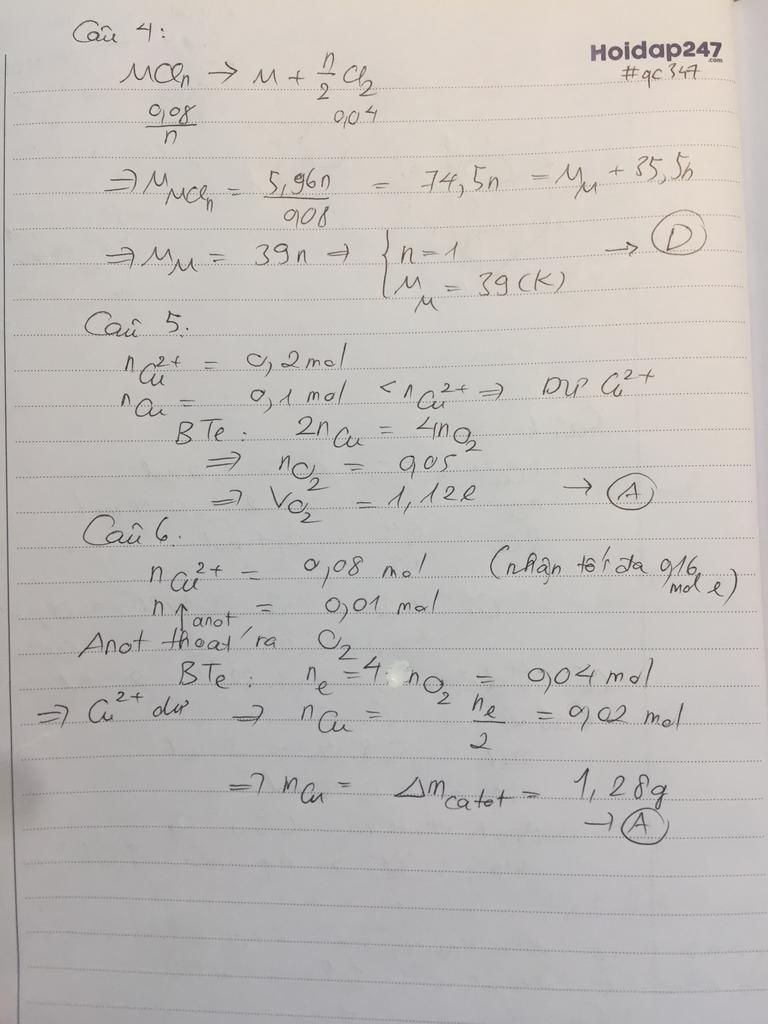 Câu 4:
Hoidap247
.com
#qc347
MCln → M + n/2 Cl2
0,08/n 0,04
=> M MCln = 5,96n/0,08 = 74,5n = M M + 35,5n
=> M M = 39n => { n = 1 → D
M M = 39 (K)
Câu 5.
n Cu2+ = 0,2 mol
n Cu = 0,1 mol < n Cu2+ => Dư Cu2+
BTe: 2nCu = 4nO2
=> nO2 = 0,05
=> VO2 = 1,12l → A
Câu 6.
n Cu2+ = 0,08 mol (nhận tối đa 0,16 mol e)
n ↑ anot = 0,01 mol
Anot thoát ra O2
BTe: ne = 4 nO2 = 0,04 mol
=> Cu2+ dư => nCu = ne/2 = 0,02 mol
=> mCu = Δm catot = 1,28g
→ A